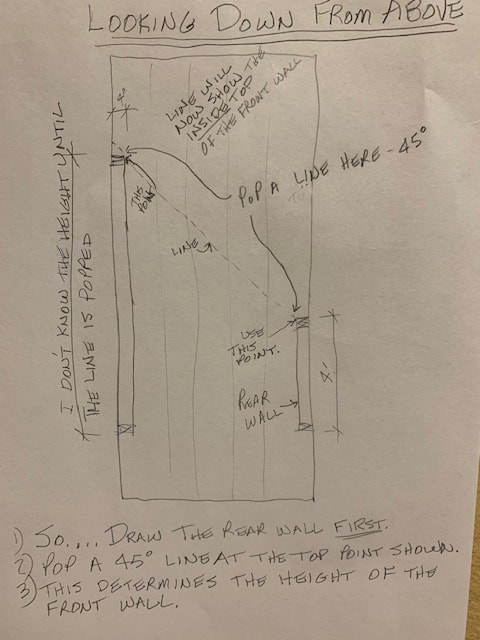 LOOKING DOWN FROM ABOVE
4"
LINE WILL
NOW SHOW THE
INSIDE TOP
OF THE FRONT WALL
THIS
POINT
POP A LINE HERE - 45°
LINE
I DON'T KNOW THE HEIGHT UNTIL
THE LINE IS POPPED
USE
THIS
POINT.
REAR
WALL
8'
1) SO.... DRAW THE REAR WALL FIRST.
2) POP A 45° LINE AT THE TOP POINT SHOWN.
3) THIS DETERMINES THE HEIGHT OF THE
FRONT WALL.